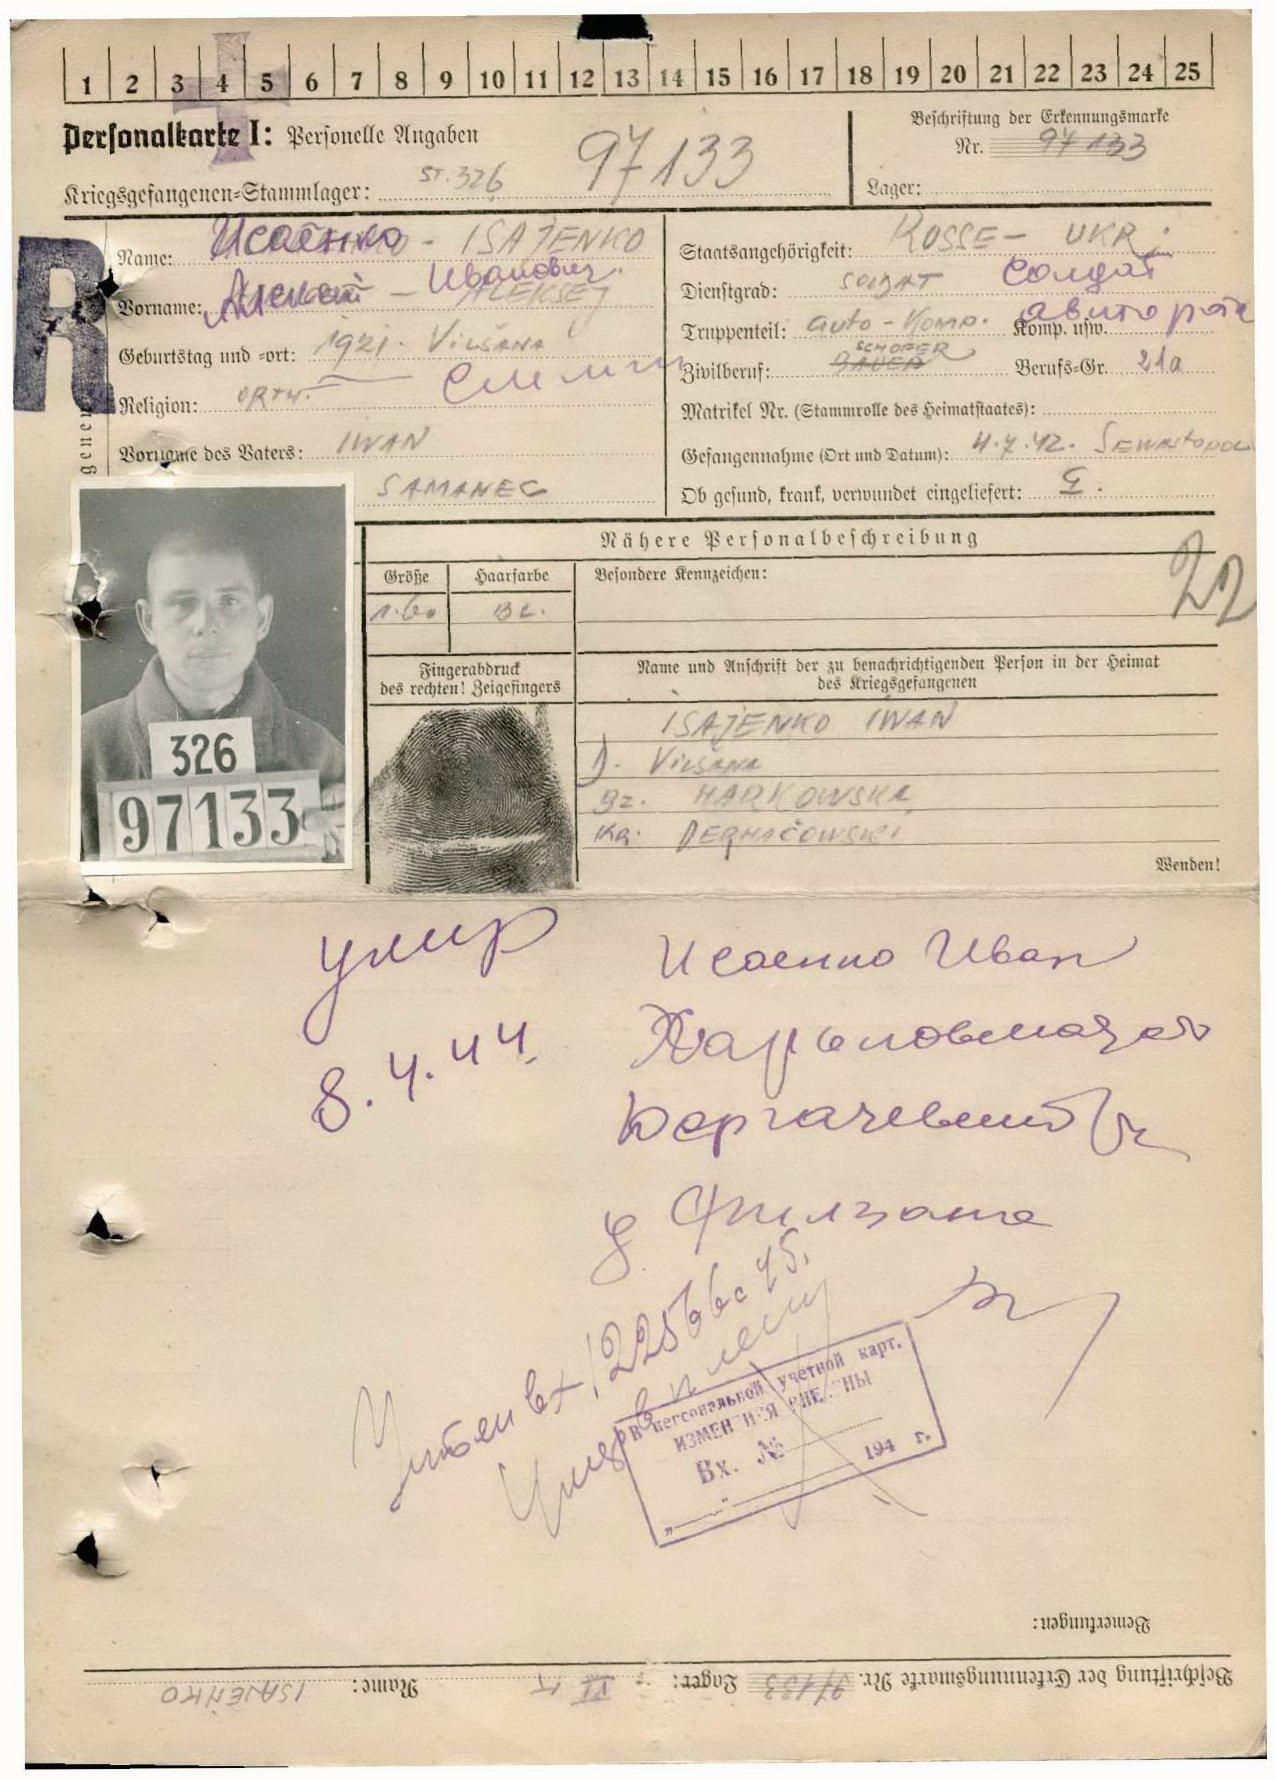 1 2 3 4 5 6 7 8 9 10 11 12 13 14 15 16 17 18 19 20 21 22 23 24 25
Personalkarte I: Personelle Angaben
97133
Beschriftung der Erkennungsmarke
Nr. 97133
Kriegsgefangenen-Stammlager: ST. 326
Lager:
R
Name: Исаенко - ISAJENKO
Staatsangehörigkeit: RUSSE - UKR.
Иванович
Vorname: Алексей - ALEKSEJ
Dienstgrad: SOLDAT Солдат
Geburtstag und -ort: 1921. VILŠANA
Truppenteil: auto-Komp. Komp. usw. авторота
Religion: ORTH.
Zivilberuf: BAUER SCHOFER Berufs-Gr. 21a
Matrikel Nr. (Stammrolle des Heimatstaates):
Vorname des Vaters: IWAN
Gefangennahme (Ort und Datum): 4.7.42. SEWASTOPOL
SAMANEC
Ob gesund, krank, verwundet eingeliefert: G.
genen
Nähere Personalbeschreibung
Größe Haarfarbe Besondere Kennzeichen:
1.60 BL.
22
Fingerabdruck
des rechten! Zeigefingers
Name und Anschrift der zu benachrichtigenden Person in der Heimat
des Kriegsgefangenen
ISAJENKO IWAN
D. VILŠANA
Bz. HARKOWSKA
Kr. DERHAČOWSKI
326
97133
Wenden!
умер
8.4.44.
Исаенко Иван
Харьковская об
Дергачевский
д.
Вх 122566с 45.
Умер в плену
В персональной учетной карт.
ИЗМЕНЕНИЯ ВНЕСЕНЫ
Вх. №
„ “ 194 г.
Bemerkungen:
Beschriftung der Erkennungsmarke Nr. 97133 Lager: Name: ISAJENKO